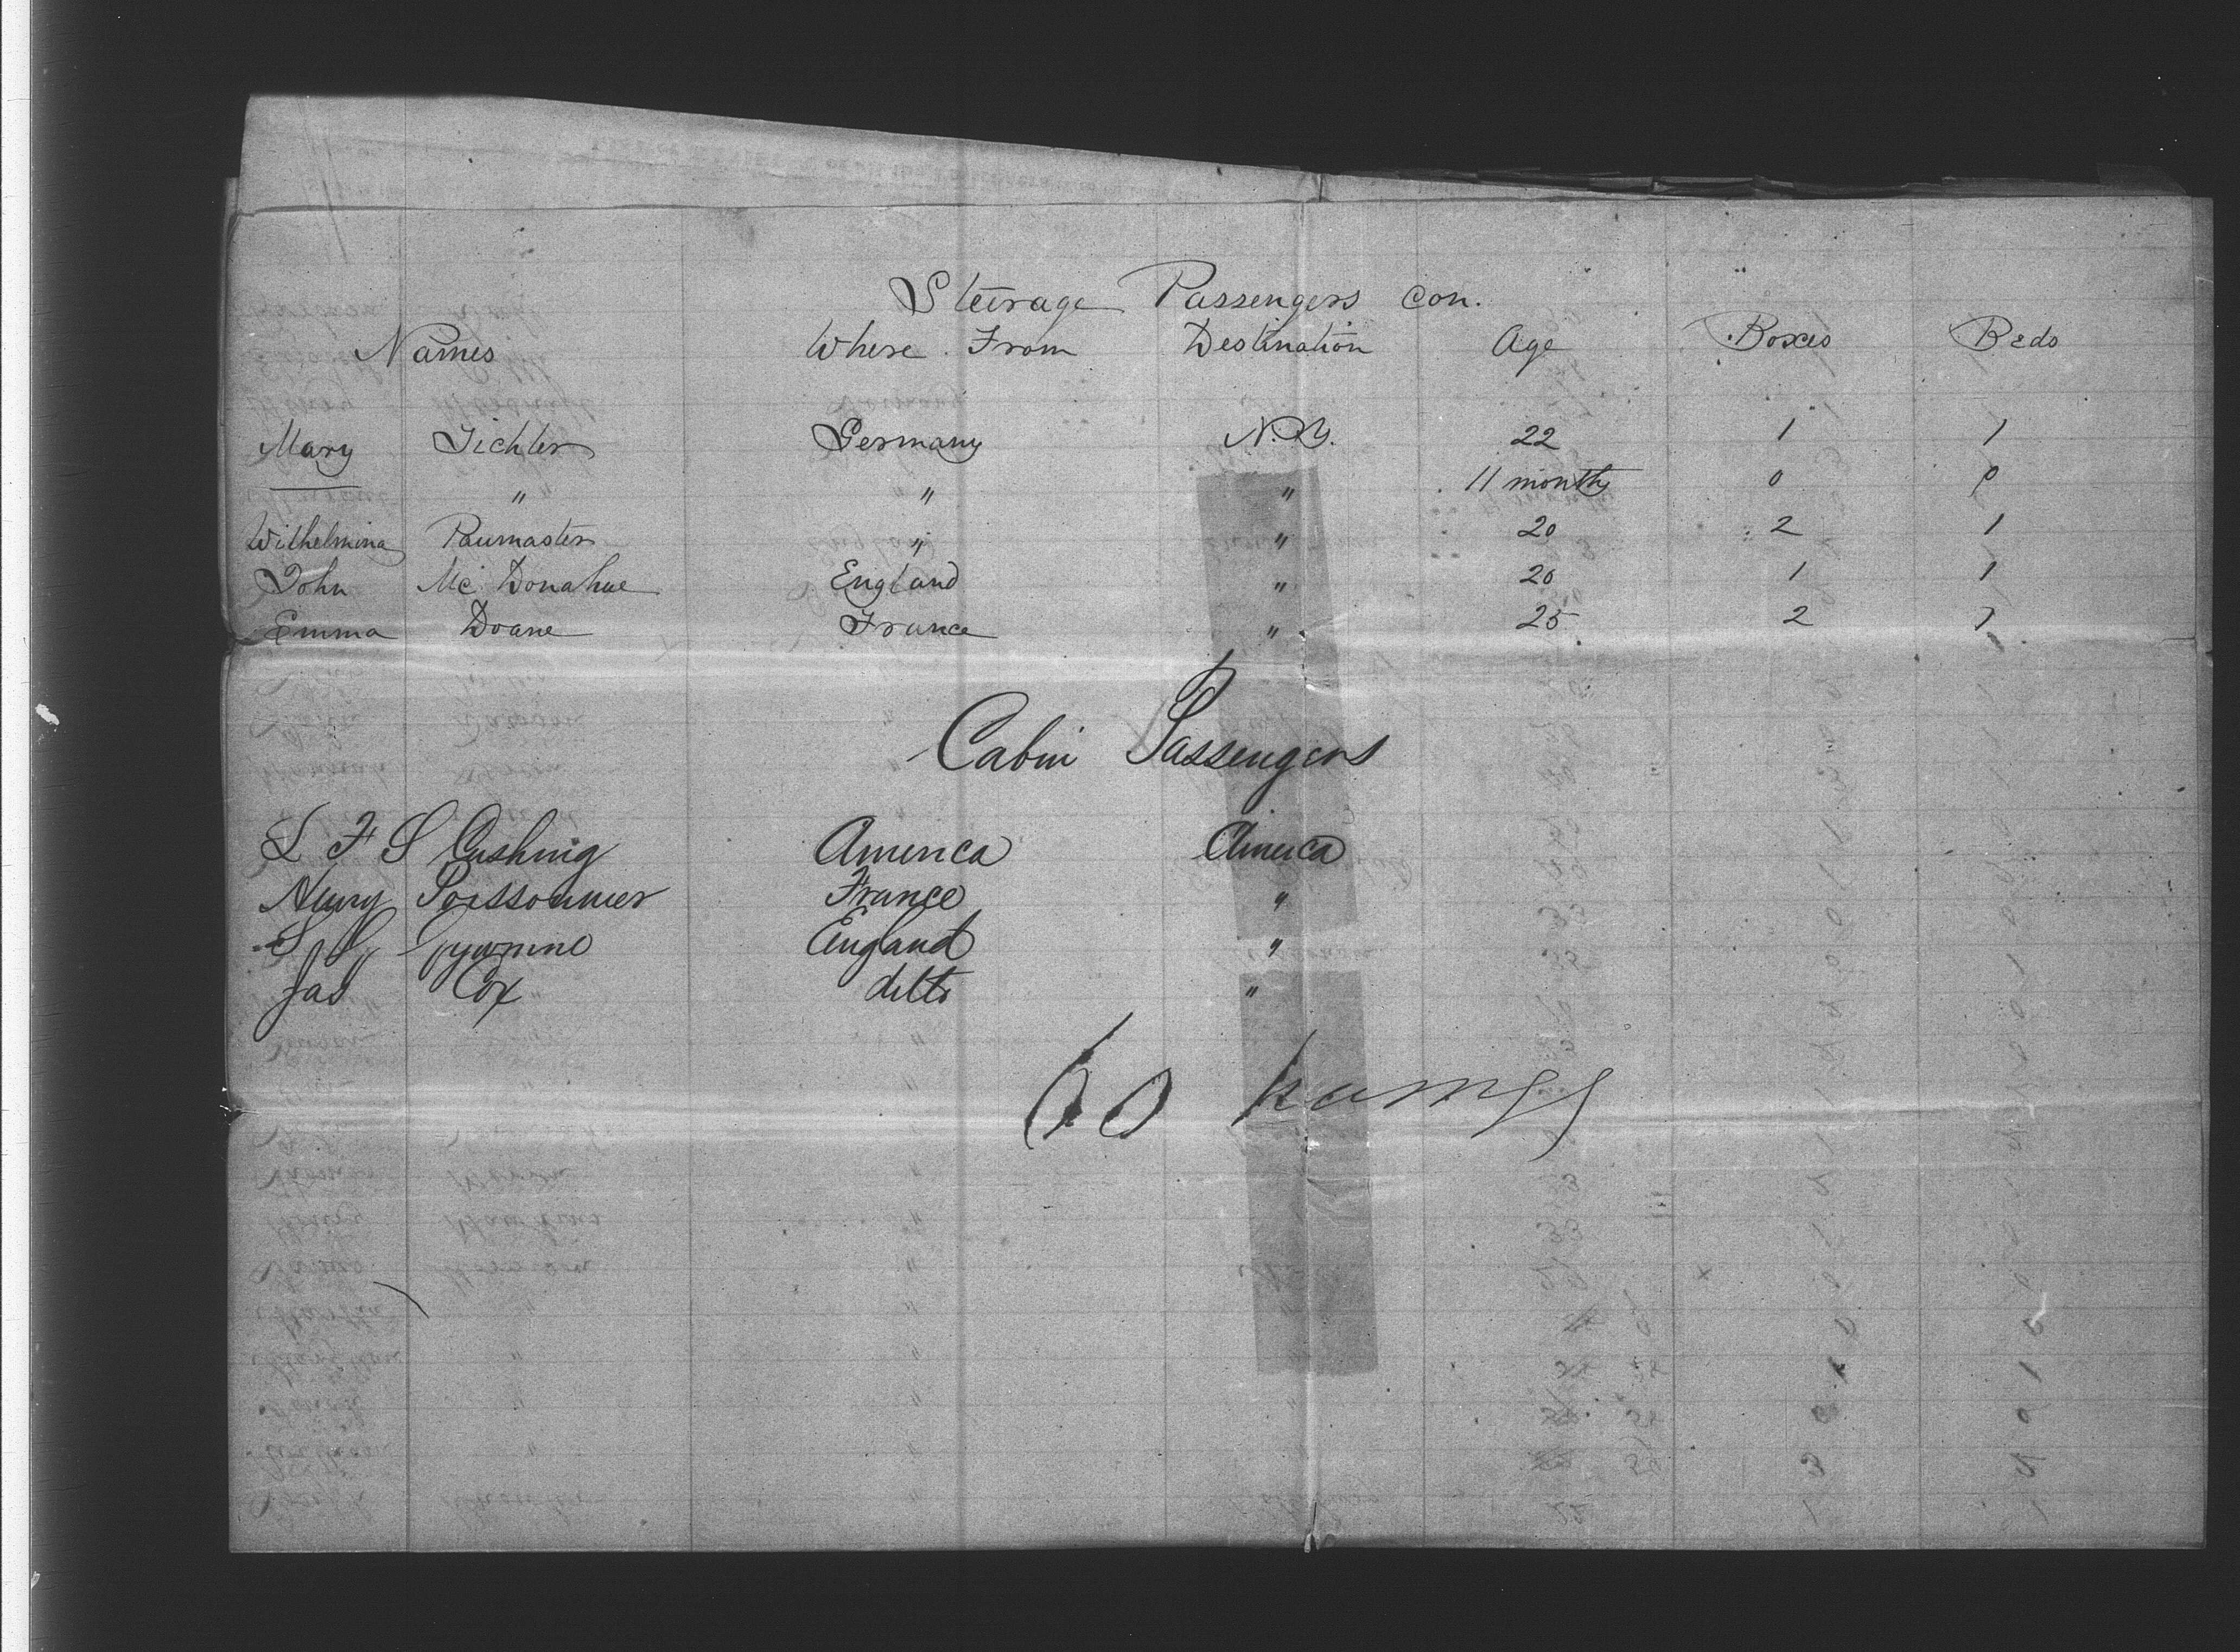 Steerage Passengers con.
Names Where From Destination Age Boxes Beds
Mary Tichler Germany N.Y. 22 1 1
— " " " 11 months 0 0
Wilhelmina Paumaster " " 20 2 1
John Mc Donahue England " 26 1 1
Emma Doane France " 25 2 1
Cabin Passengers
L F S Cushing America America
Henry Poissonnier France "
England "
Jas Cox ditto "
60 names